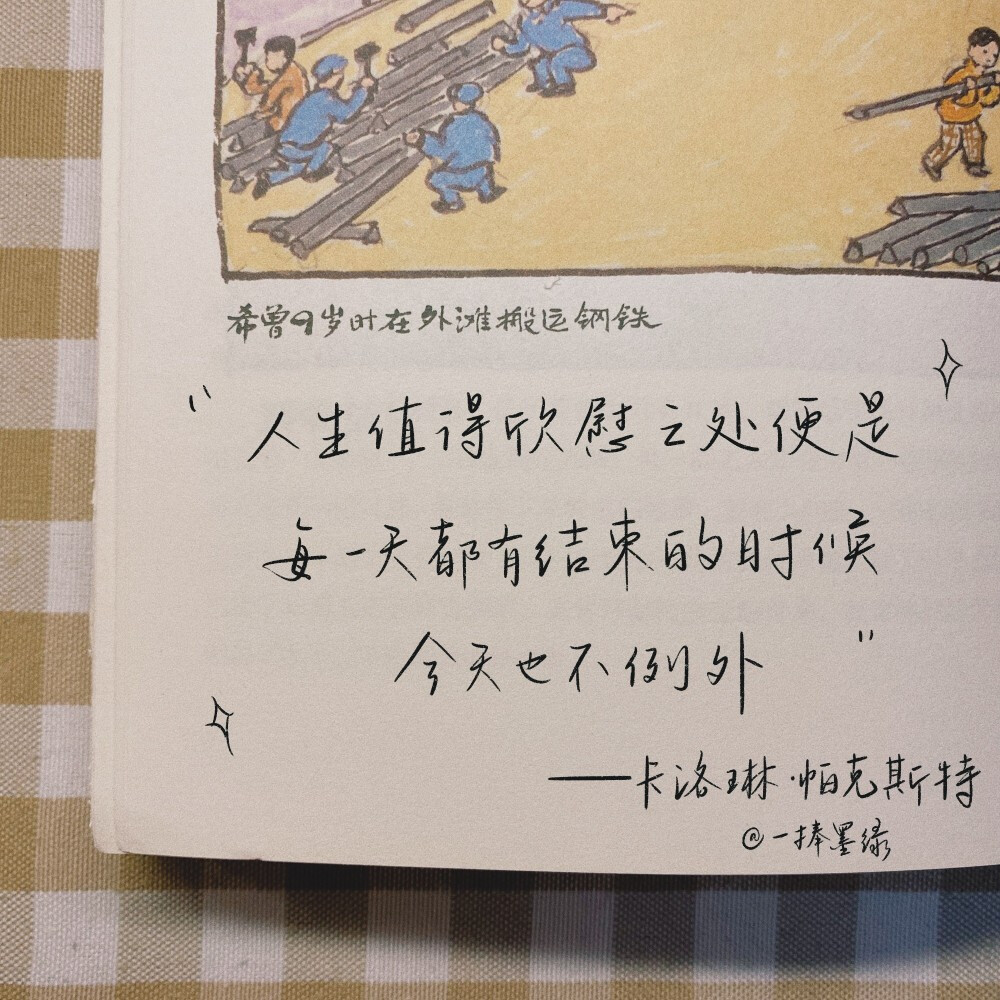 希曾9岁时在外滩搬运钢铁
"人生值得欣慰之处便是
每一天都有结束的时候
今天也不例外"
——卡洛琳·帕克斯特
@一捧墨绿